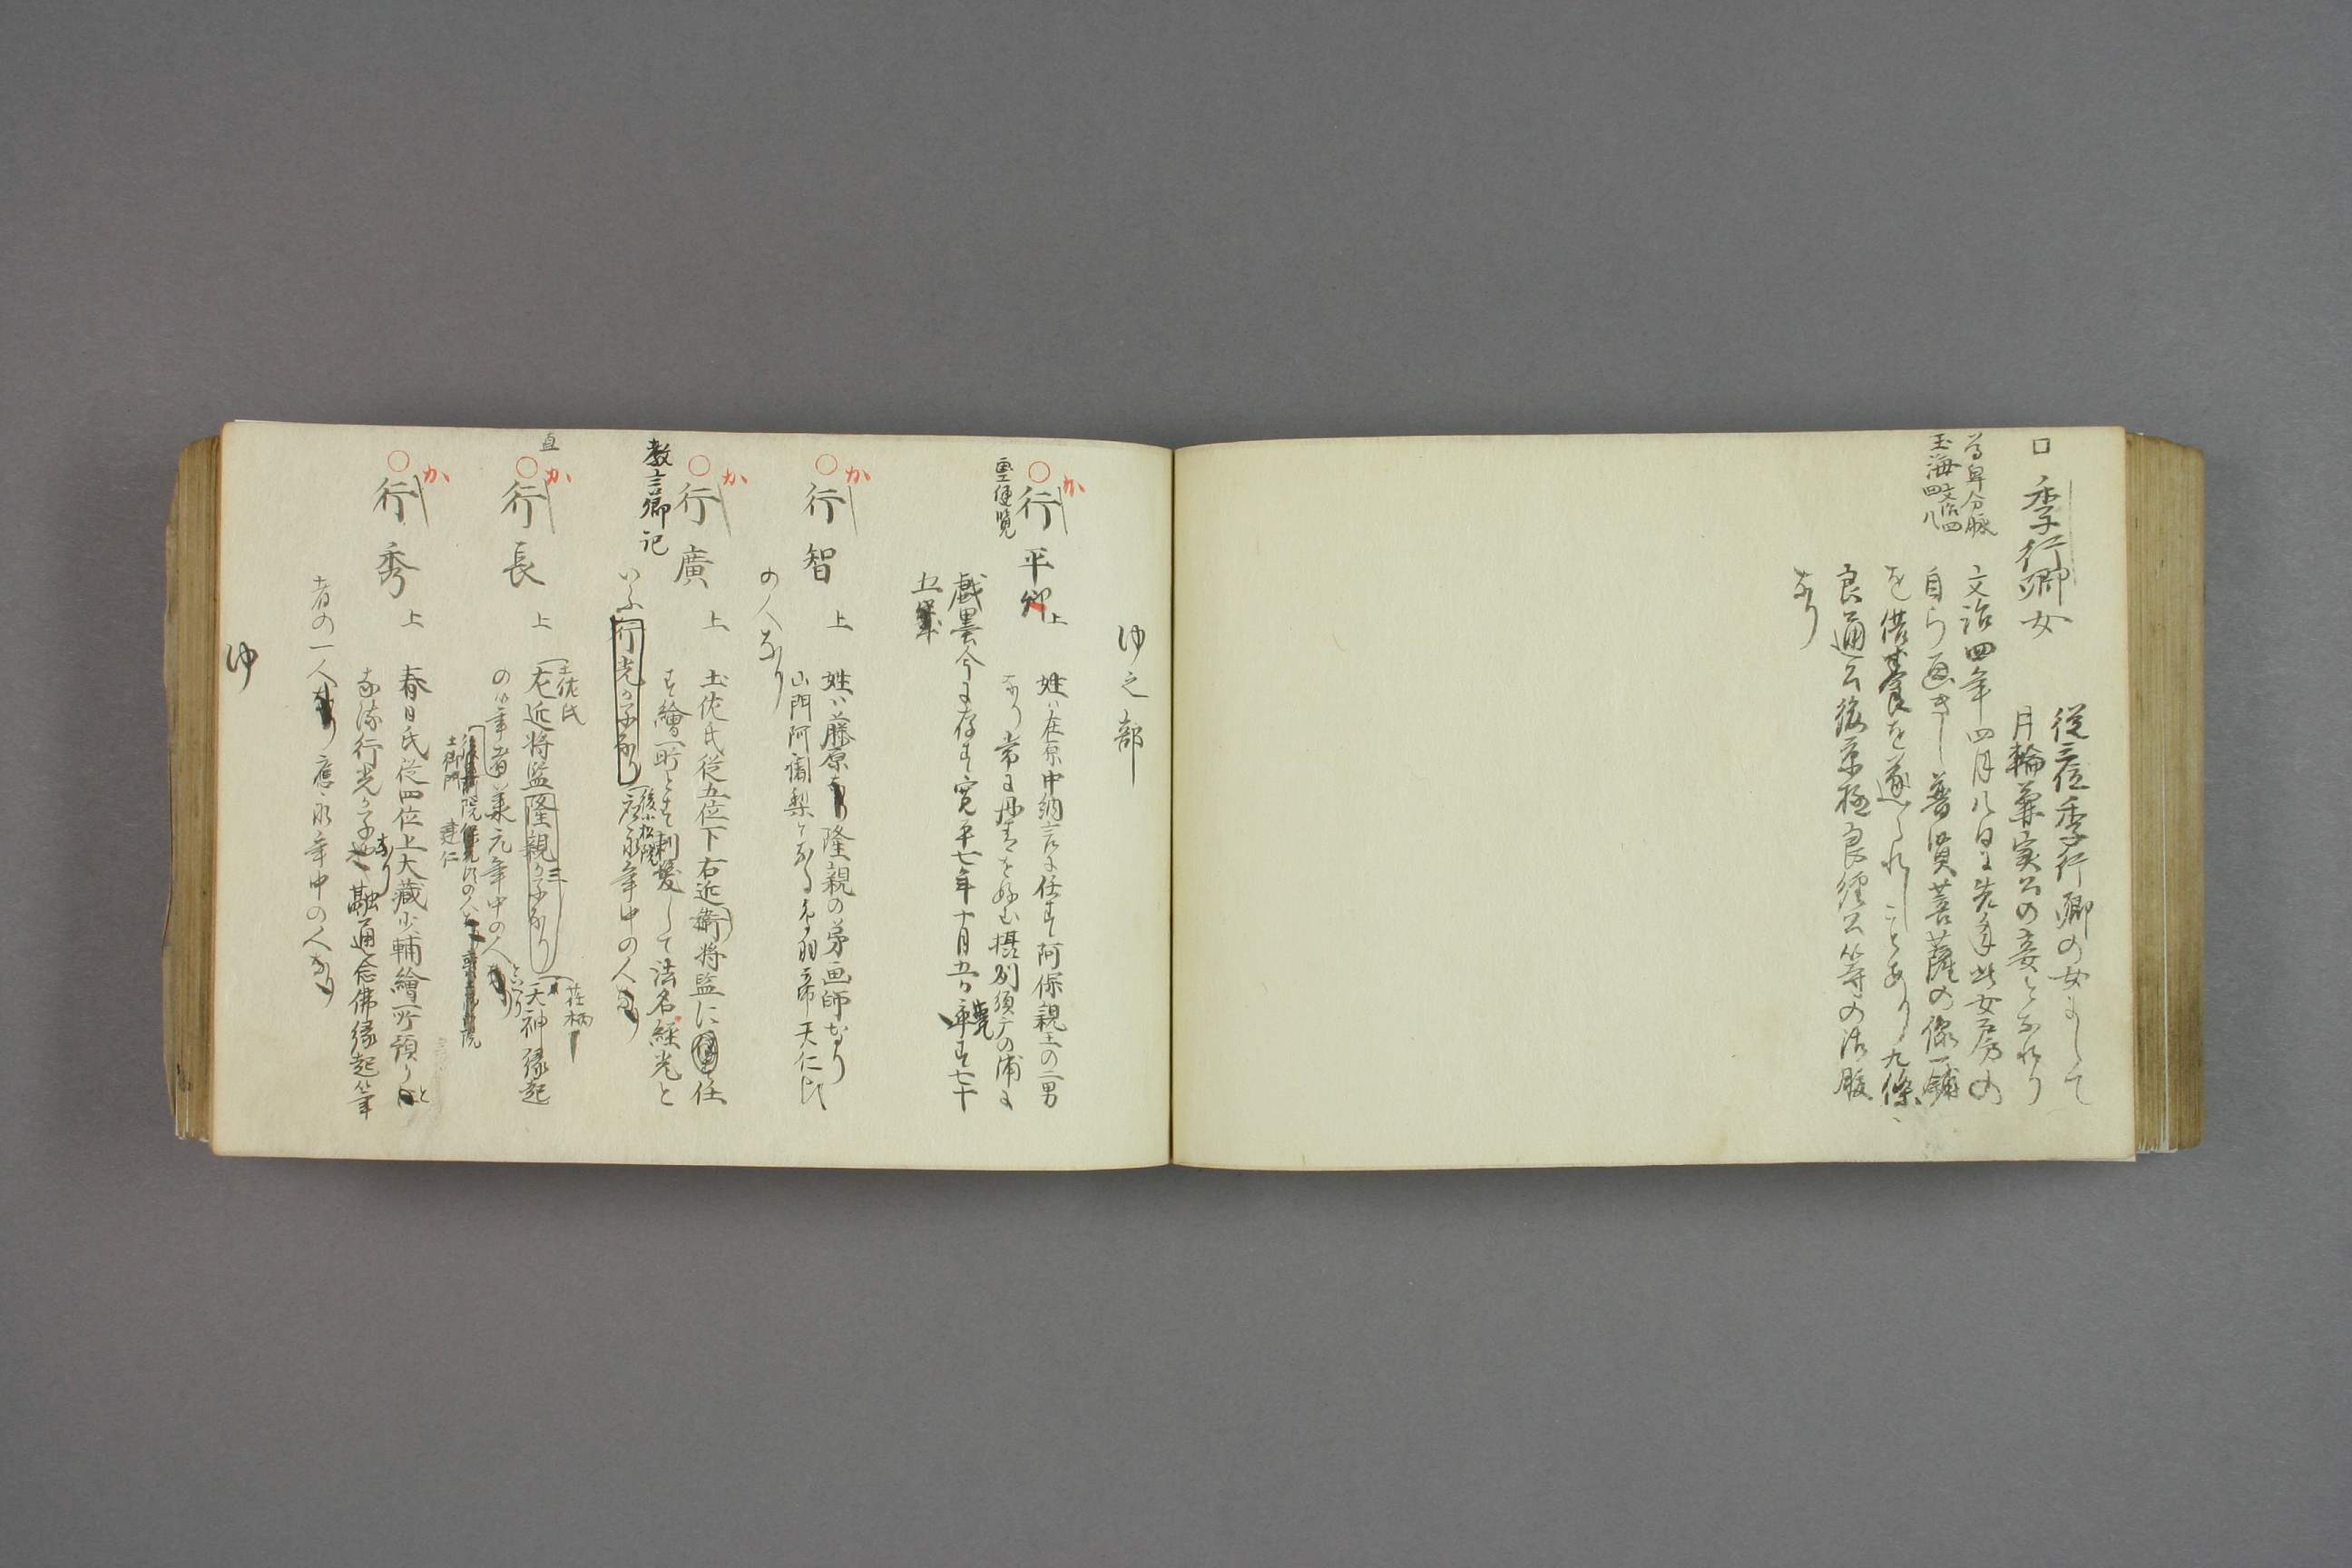 口 季行卿女
従三位季行卿の女にして
月輪兼実公の妾となれり
尊卑分脈
玉海 文治四 四 八
文治四年四月八日に先年此女房の
自ら画きし普賢菩薩の像一鋪
を供養を遂られしことあり九條
良通公後京極良経公等の御腹
なり
ゆ之部
か
○行平卿 上
姓は在原中納言に任す阿保親王の二男
なり常に丹青を好む摂州須广の浦に
画工便覧
戯墨今に存す寛平七年十月五日薨す七十
五
か
○行智 上
姓は藤原隆親の弟画師なり
山門阿闍梨となる鳥羽帝天仁比
の人なり
か
○行廣 上
土佐氏従五位下右近衛将監に任
す繪所となる剃髪して法名経光と
教言卿記
いふ行光の子なり
後小松院
應永年中の人なり
か
○行長 上
直
土佐氏
左近将監隆親の三子なり
荏柄
天神縁起
の筆者
元年中の人
といへり
土御門
建仁
か
○行秀 上
春日氏従四位上大蔵少輔繪所預り
と
なる行光の子なり融通念佛縁起筆
者の一人なり應永年中の人なり
ゆ